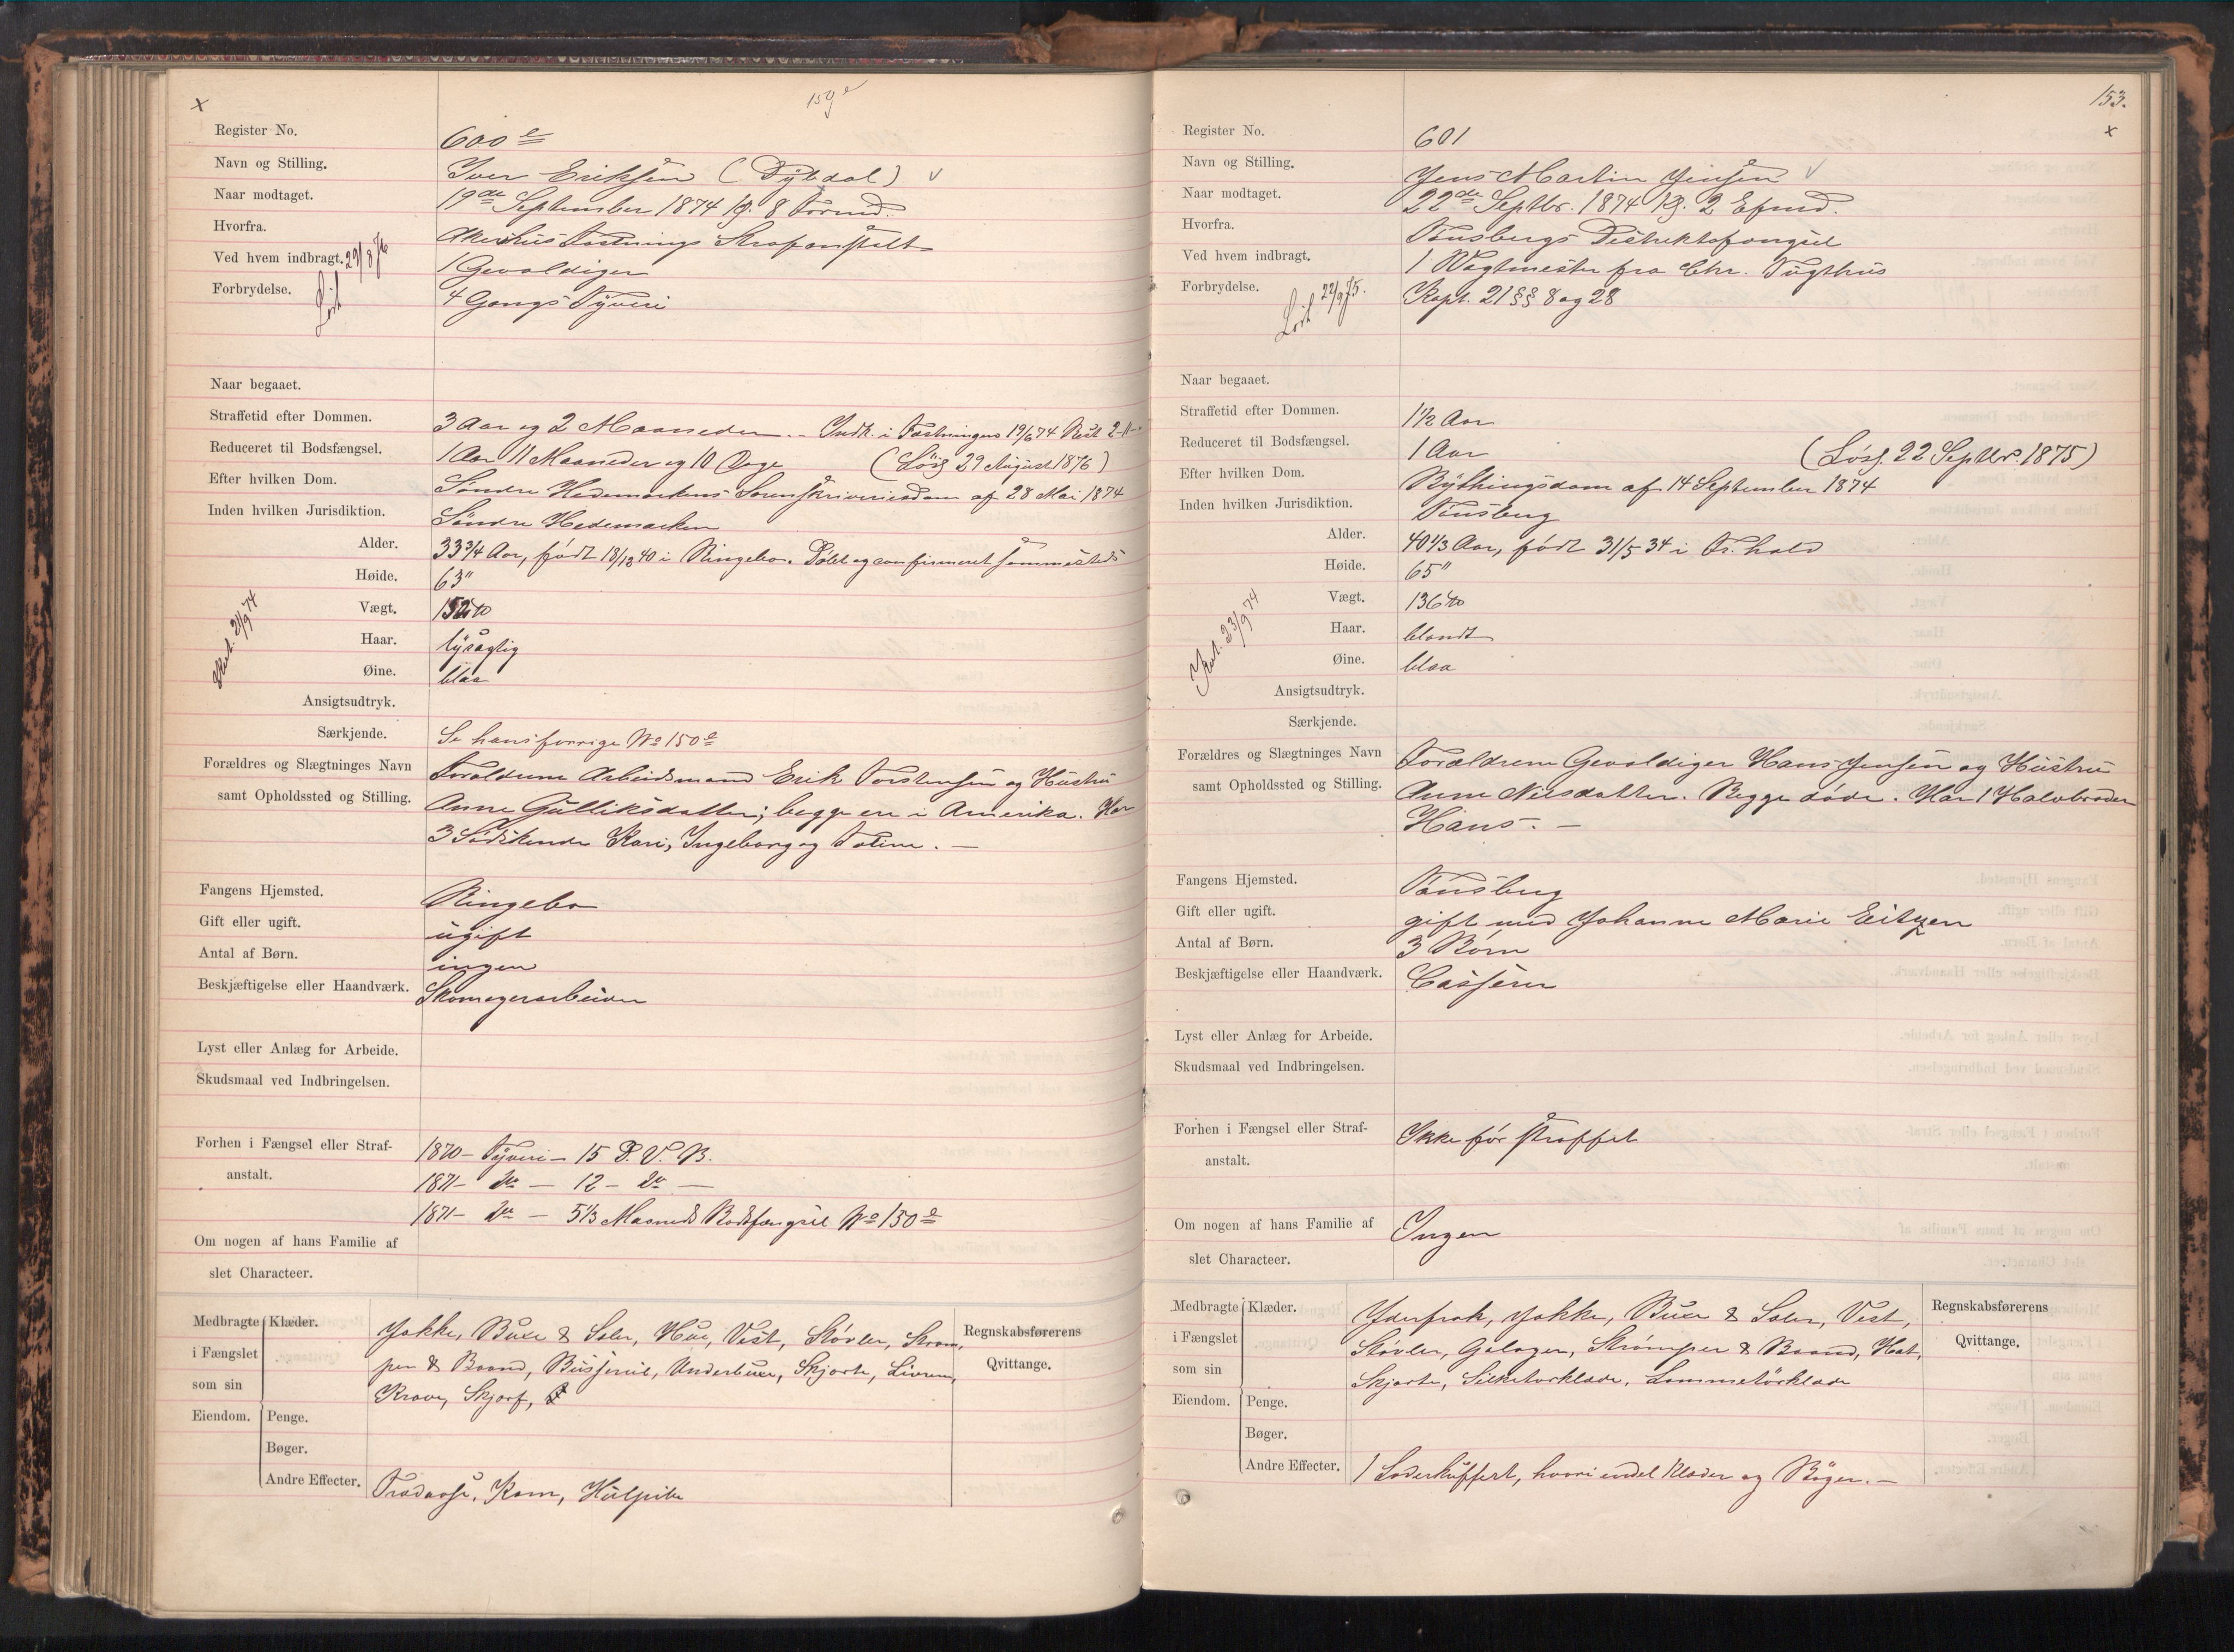 x
150 e
Register No. 600 e
Navn og Stilling. Iver Eriksen (Dybdal) v
Naar modtaget. 19de September 1874 Kl. 8 Formd.
Hvorfra. Akershus Fæstnings Strafanstalt
Ved hvem indbragt. 1 Gevaldiger
Forbrydelse. 4 Gangs Tyveri
Løst 29/8 76
Naar begaaet.
Straffetid efter Dommen. 3 Aar og 2 Maaneder. - Indk. i Fæstningen 19/6 74 Rest 2-11-
Reduceret til Bodsfængsel. 1 Aar 11 Maaneder og 10 Dage (Løsg 29 August 1876)
Efter hvilken Dom. Søndre Hedemarkens Sorenskriveriesdom af 28 Mai 1874
Inden hvilken Jurisdiktion. Søndre Hedemarken
Alder. 33 3/4 Aar, født 18/12 40 i Ringebo. Døbt og confirmeret sammesteds
Høide. 63"
Vægt. 152 ℔
Haar. lysagtig
Øine. blaa
21/9 74
Ansigtsudtryk.
Særkjende. Se hans forrige No 150 e
Forældres og Slægtninges Navn Forældrene Arbeidsmand Erik Torstensen og Hustru
samt Opholdssted og Stilling. Anne Gulliksdatter; begge ere i Amerika. Har
3 Sødskende Kari, Ingeborg og Toline. -
Fangens Hjemsted. Ringebo
Gift eller ugift. ugift
Antal af Børn. ingen
Beskjæftigelse eller Haandværk. Skomagerarbeider
Lyst eller Anlæg for Arbeide.
Skudsmaal ved Indbringelsen.
Forhen i Fængsel eller Straf- 1870 - Tyveri - 15 D. V. B.
anstalt. 1871 - do - 12 - do -
1871 - do - 5 1/3 Maaneds Bodsfængsel No 150 e
Om nogen af hans Familie af
slet Characteer.
Medbragte i Fængslet som sin Eiendom.
Klæder. Jakke, Buxe & Seler, Hue, Vest, Støvler, Strøm-
per & Baand, Busserul, Underbuxe, Skjorte, Livrem,
Krave, Skjærf,
Regnskabsførerens
Qvittange.
Penge.
Bøger.
Andre Effecter. Kam,
153.
x
Register No. 601
Navn og Stilling. Jens Martin Jensen v
Naar modtaget. 22de Septbr. 1874 Kl. 2 Efmd.
Hvorfra. Tønsbergs Distriktsfængsel
Ved hvem indbragt. 1 Vagtmester fra Chr. Tugthus
Forbrydelse. Kapt. 21 §§ 8 og 28
Løst 22/9 75.
Naar begaaet.
Straffetid efter Dommen. 1 1/2 Aar
Reduceret til Bodsfængsel. 1 Aar (Løsg. 22 Septbr. 1875)
Efter hvilken Dom. Bythingsdom af 14 September 1874
Inden hvilken Jurisdiktion. Tønsberg
Alder. 40 1/3 Aar, født 31/5 34 i Fr.hald
Høide. 65"
Vægt. 136 ℔
Haar. blondt
Øine. blaa
23/9 74
Ansigtsudtryk.
Særkjende.
Forældres og Slægtninges Navn Forældrene Gevaldiger Hans Jensen og Hustru
samt Opholdssted og Stilling. Anne Nilsdatter. Begge døde. Har 1 Halvbroder
Hans. -
Fangens Hjemsted. Tønsberg
Gift eller ugift. gift med Johanne Marie Eitzen
Antal af Børn. 3 Børn
Beskjæftigelse eller Haandværk. Casserer
Lyst eller Anlæg for Arbeide.
Skudsmaal ved Indbringelsen.
Forhen i Fængsel eller Straf- Ikke før straffet
anstalt.
Om nogen af hans Familie af Ingen
slet Characteer.
Medbragte i Fængslet som sin Eiendom.
Klæder. Yderfrak, Jakke, Buxe & Seler, Vest,
Støvler, Galoger, Strømper & Baand, Hat,
Skjorte, Silketørklæde, Lommetörklæde
Regnskabsførerens
Qvittange.
Penge.
Bøger.
Andre Effecter. 1 Læderkuffert, hvori endel Klæder og Bøger. -